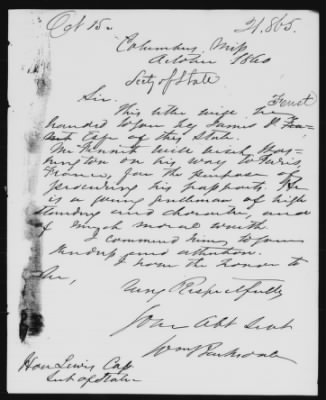 Oct 15
21.865.
Columbus, Miss
October 1860
Secty of State
Sir.
This letter will be
handed to you by James W.
Esqr of this State.
Mr will visit Wash-
ington on his way to Paris,
France, for the purpose of
procuring his passport. He
is a young gentleman of high
standing and character, and
of much moral worth.
I commend him to your
kindness and attention.
I have the honor to
be,
Very Respectfully
Your Obt Servt
Barksdale
Hon Lewis Cass
Sect of State